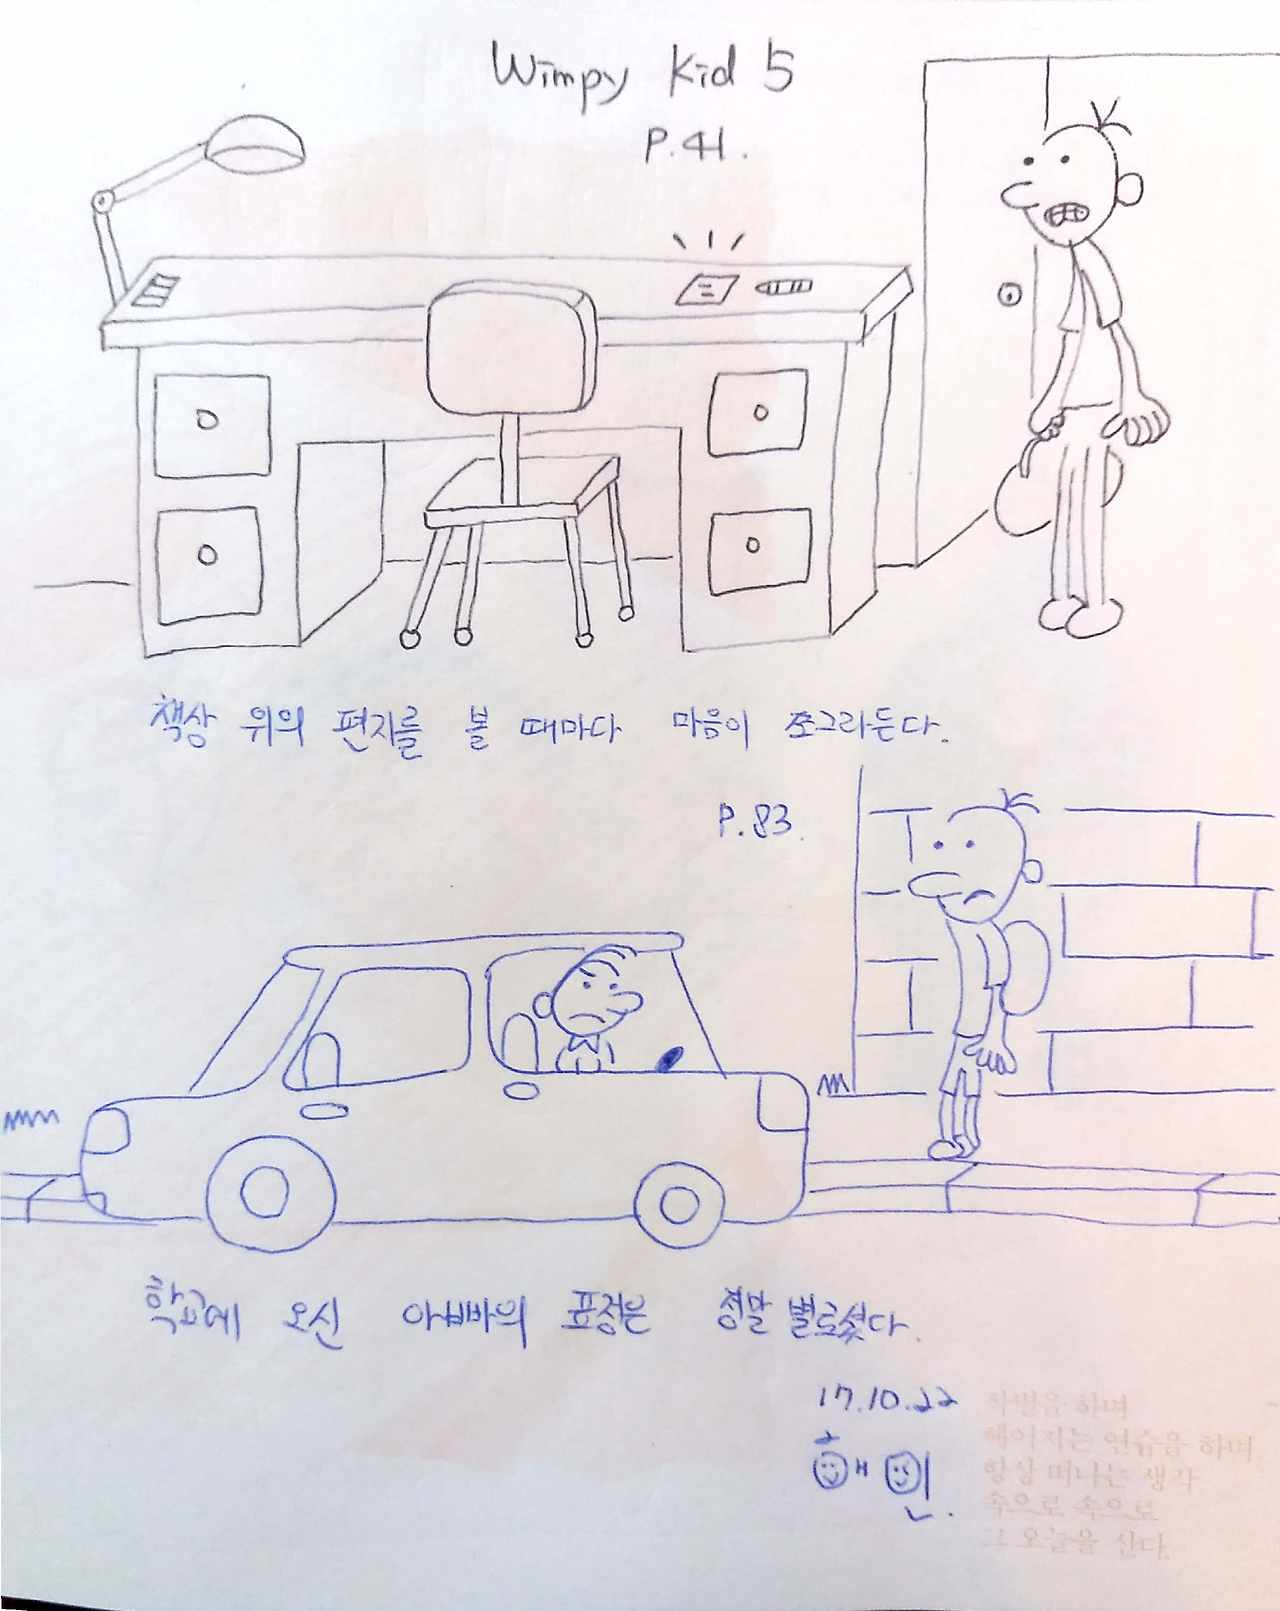 Wimpy Kid 5
P.41.
책상 위의 편지를 볼 때마다 마음이 쪼그라든다.
P.83.
학교에 오신 아빠의 표정은 정말 별로셨다.
17.10.22
해인.
차별을 하며
헤어지는 연습을 하며
항상 떠나는 생각
속으로 속으로
그 오늘을 산다.